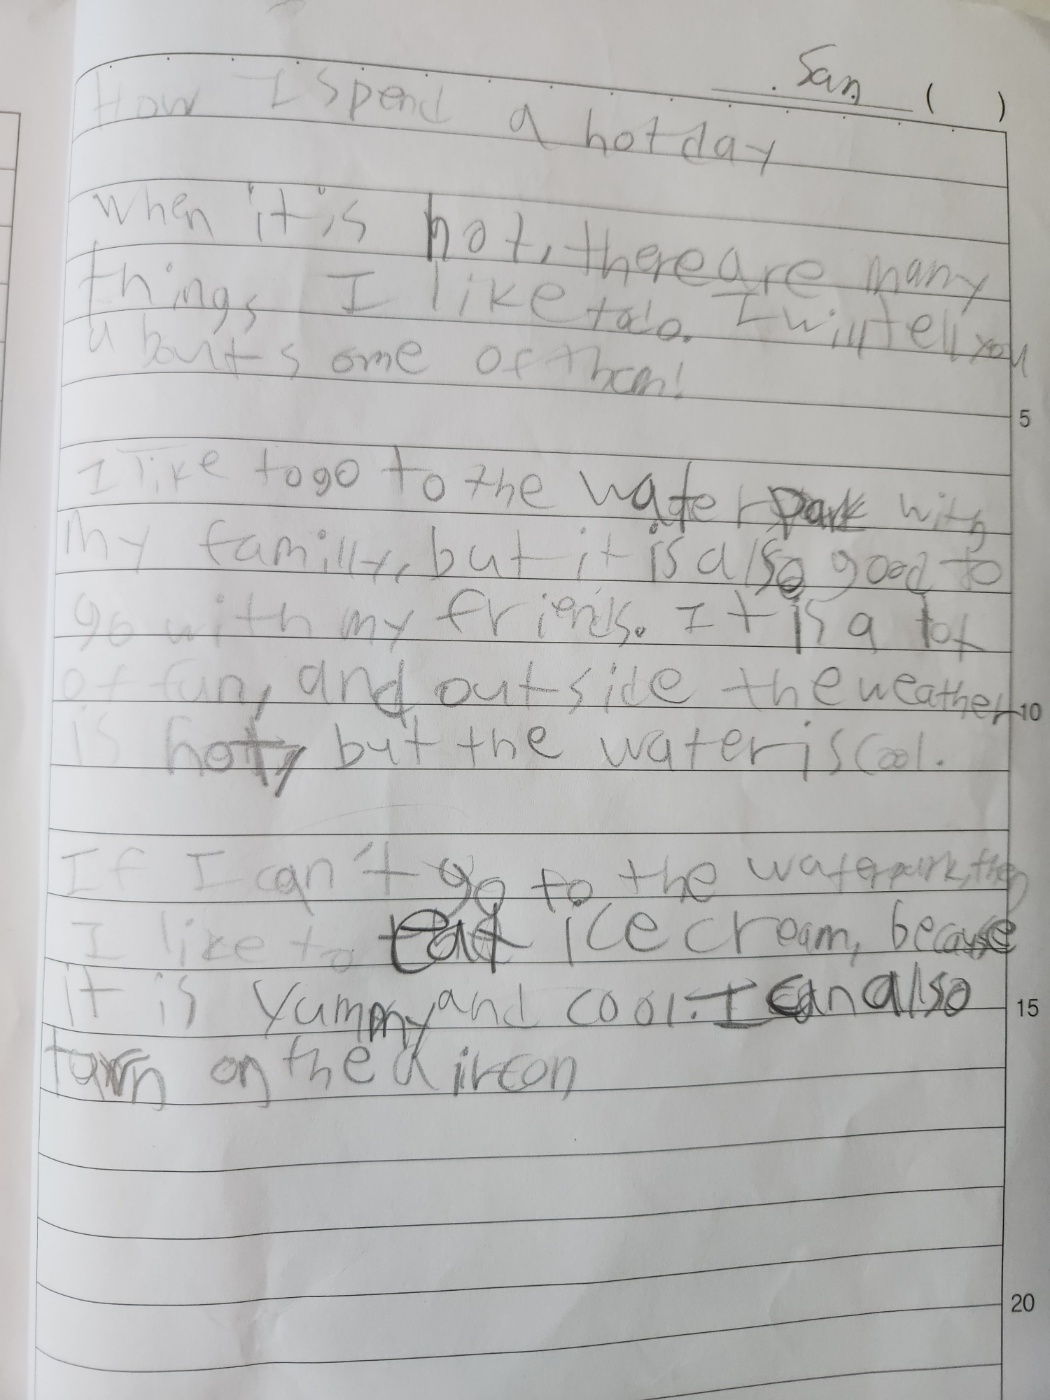 San ( )
How I spend a hot day
when it is hot, there are many
things I like to do. I will tell you
about some of them!
5
I like to go to the water park with
my familly, but it is also good to
go with my friends. It is a lot
of fun, and outside the weather
10
is hot, but the water is cool.
If I can't go to the waterpark, then
I like to eat ice cream, because
it is yummy and cool. I can also
15
turn on the aircon
20